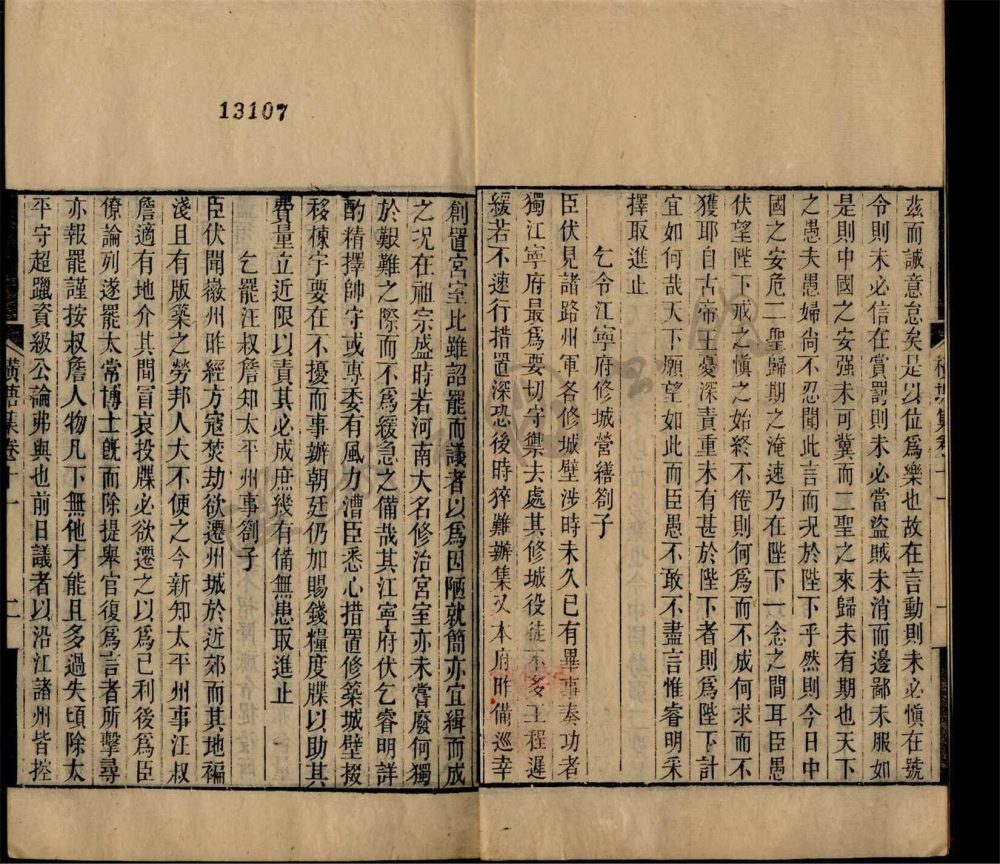 13107
茲而誠意怠矣是以位爲樂也故在言動則未必愼在號
令則未必信在賞罰則未必當盜賊未消而邊鄙未服如
是則中國之安强未可冀而二聖之來歸未有期也天下
之愚夫愚婦尙不忍聞此言而况於陛下乎然則今日中
國之安危二聖歸期之淹速乃在陛下一念之間耳臣愚
伏望陛下戒之愼之始終不倦則何爲而不成何求而不
獲耶自古帝王憂深責重未有甚於陛下者則爲陛下計
宜如何哉天下願望如此而臣愚不敢不盡言惟睿明采
擇取進止
乞令江寧府修城營繕劄子
臣伏見諸路州軍各修城壁涉時未久已有畢事奏功者
獨江寧府最爲要切守禦去處其修城役徒不多工程遲
緩若不速行措置深恐後時猝難辦集又本府昨備巡幸
創置宮室比雖詔罷而議者以爲因陋就簡亦宜緝而成
之况在祖宗盛時若河南大名修治宮室亦未嘗廢何獨
於艱難之際而不爲緩急之備哉其江寧府伏乞睿明詳
酌精擇帥守或專委有風力漕臣悉心措置修築城壁掇
移棟宇要在不擾而事辦朝廷仍加賜錢糧度牒以助其
費量立近限以責其必成庶幾有備無患取進止
乞罷汪叔詹知太平州事劄子
臣伏聞徽州昨經方寇焚劫欲遷州城於近郊而其地褊
淺且有版築之勞邦人大不便之今新知太平州事汪叔
詹適有地介其間冒哀投牒必欲遷之以爲己利後爲臣
僚論列遂罷太常博士旣而除提舉官復爲言者所擊尋
亦報罷謹按叔詹人物凡下無他才能且多過失頃除太
平守超躐資級公論弗與也前日議者以沿江諸州皆控
橫塘集卷十一
二